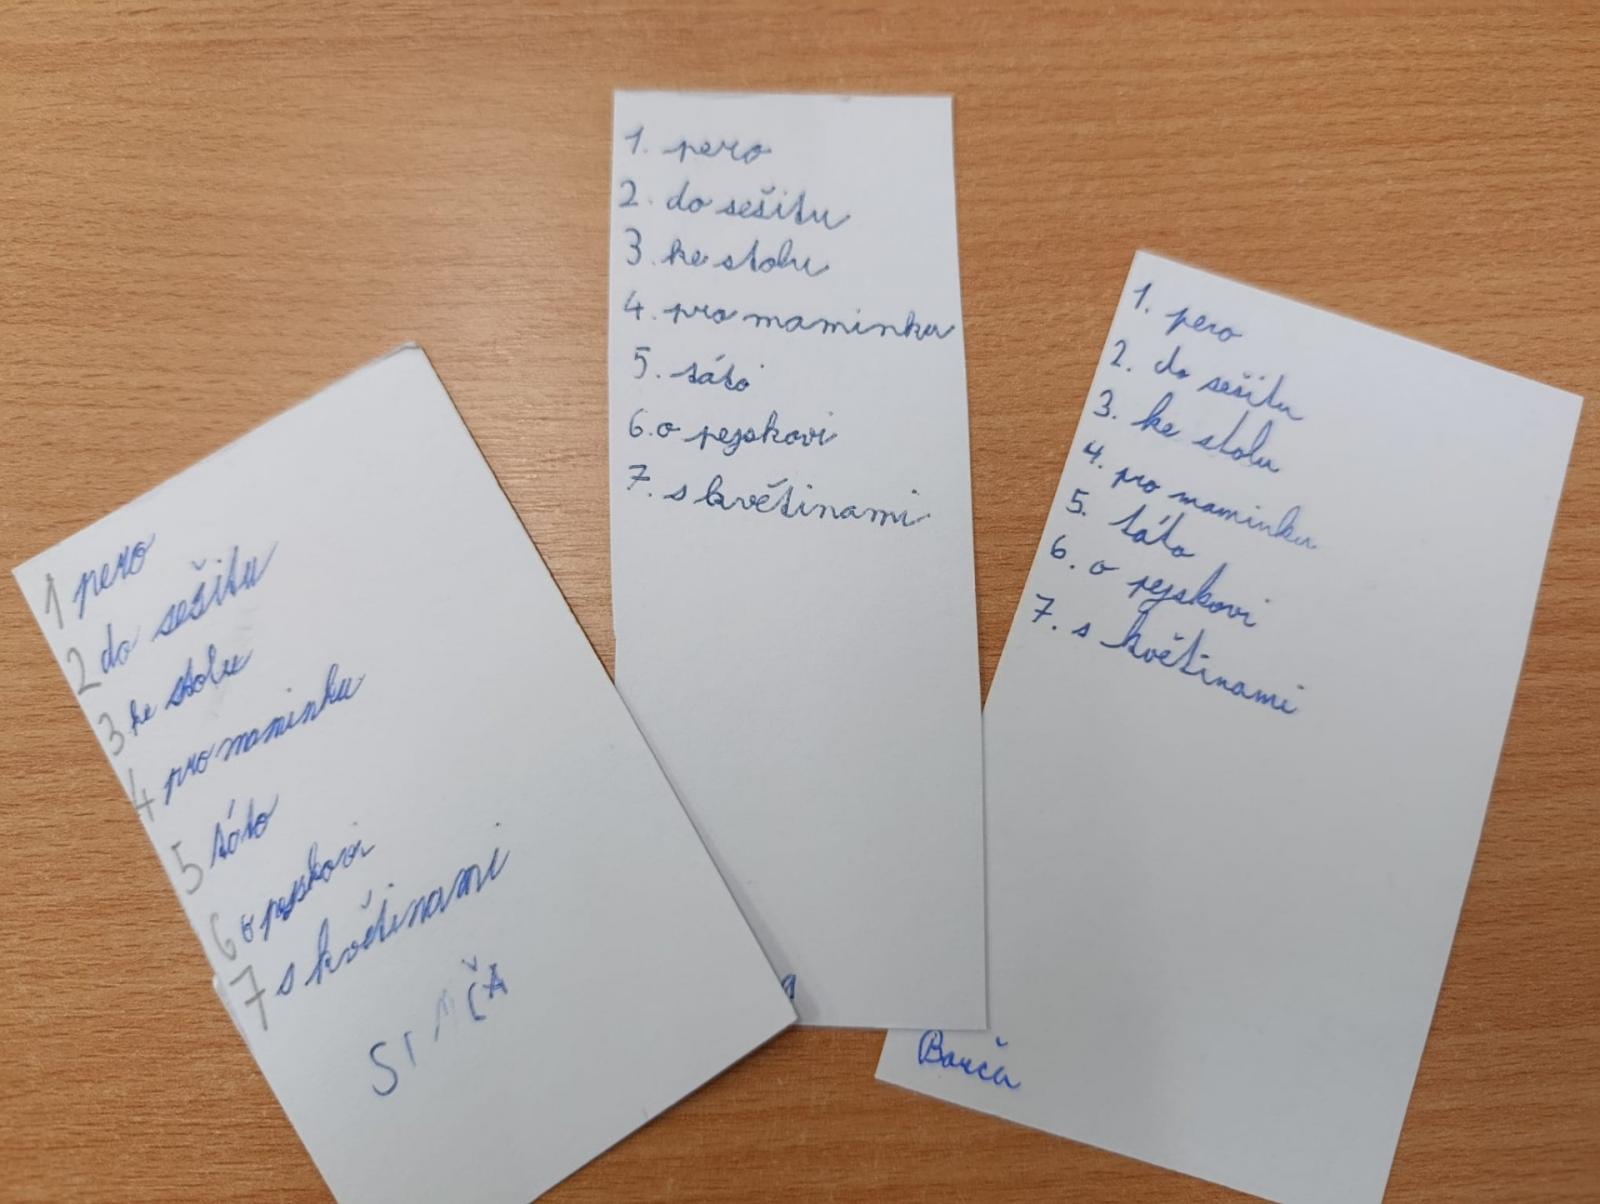 1 pero
2 do sešitu
3 ke stolu
4 pro maminku
5 táto
6 o pejskovi
7 s květinami
SIMČA
1. pero
2. do sešitu
3. ke stolu
4. pro maminku
5. táto
6. o pejskovi
7. s květinami
1. pero
2. do sešitu
3. ke stolu
4. pro maminku
5. táto
6. o pejskovi
7. s květinami